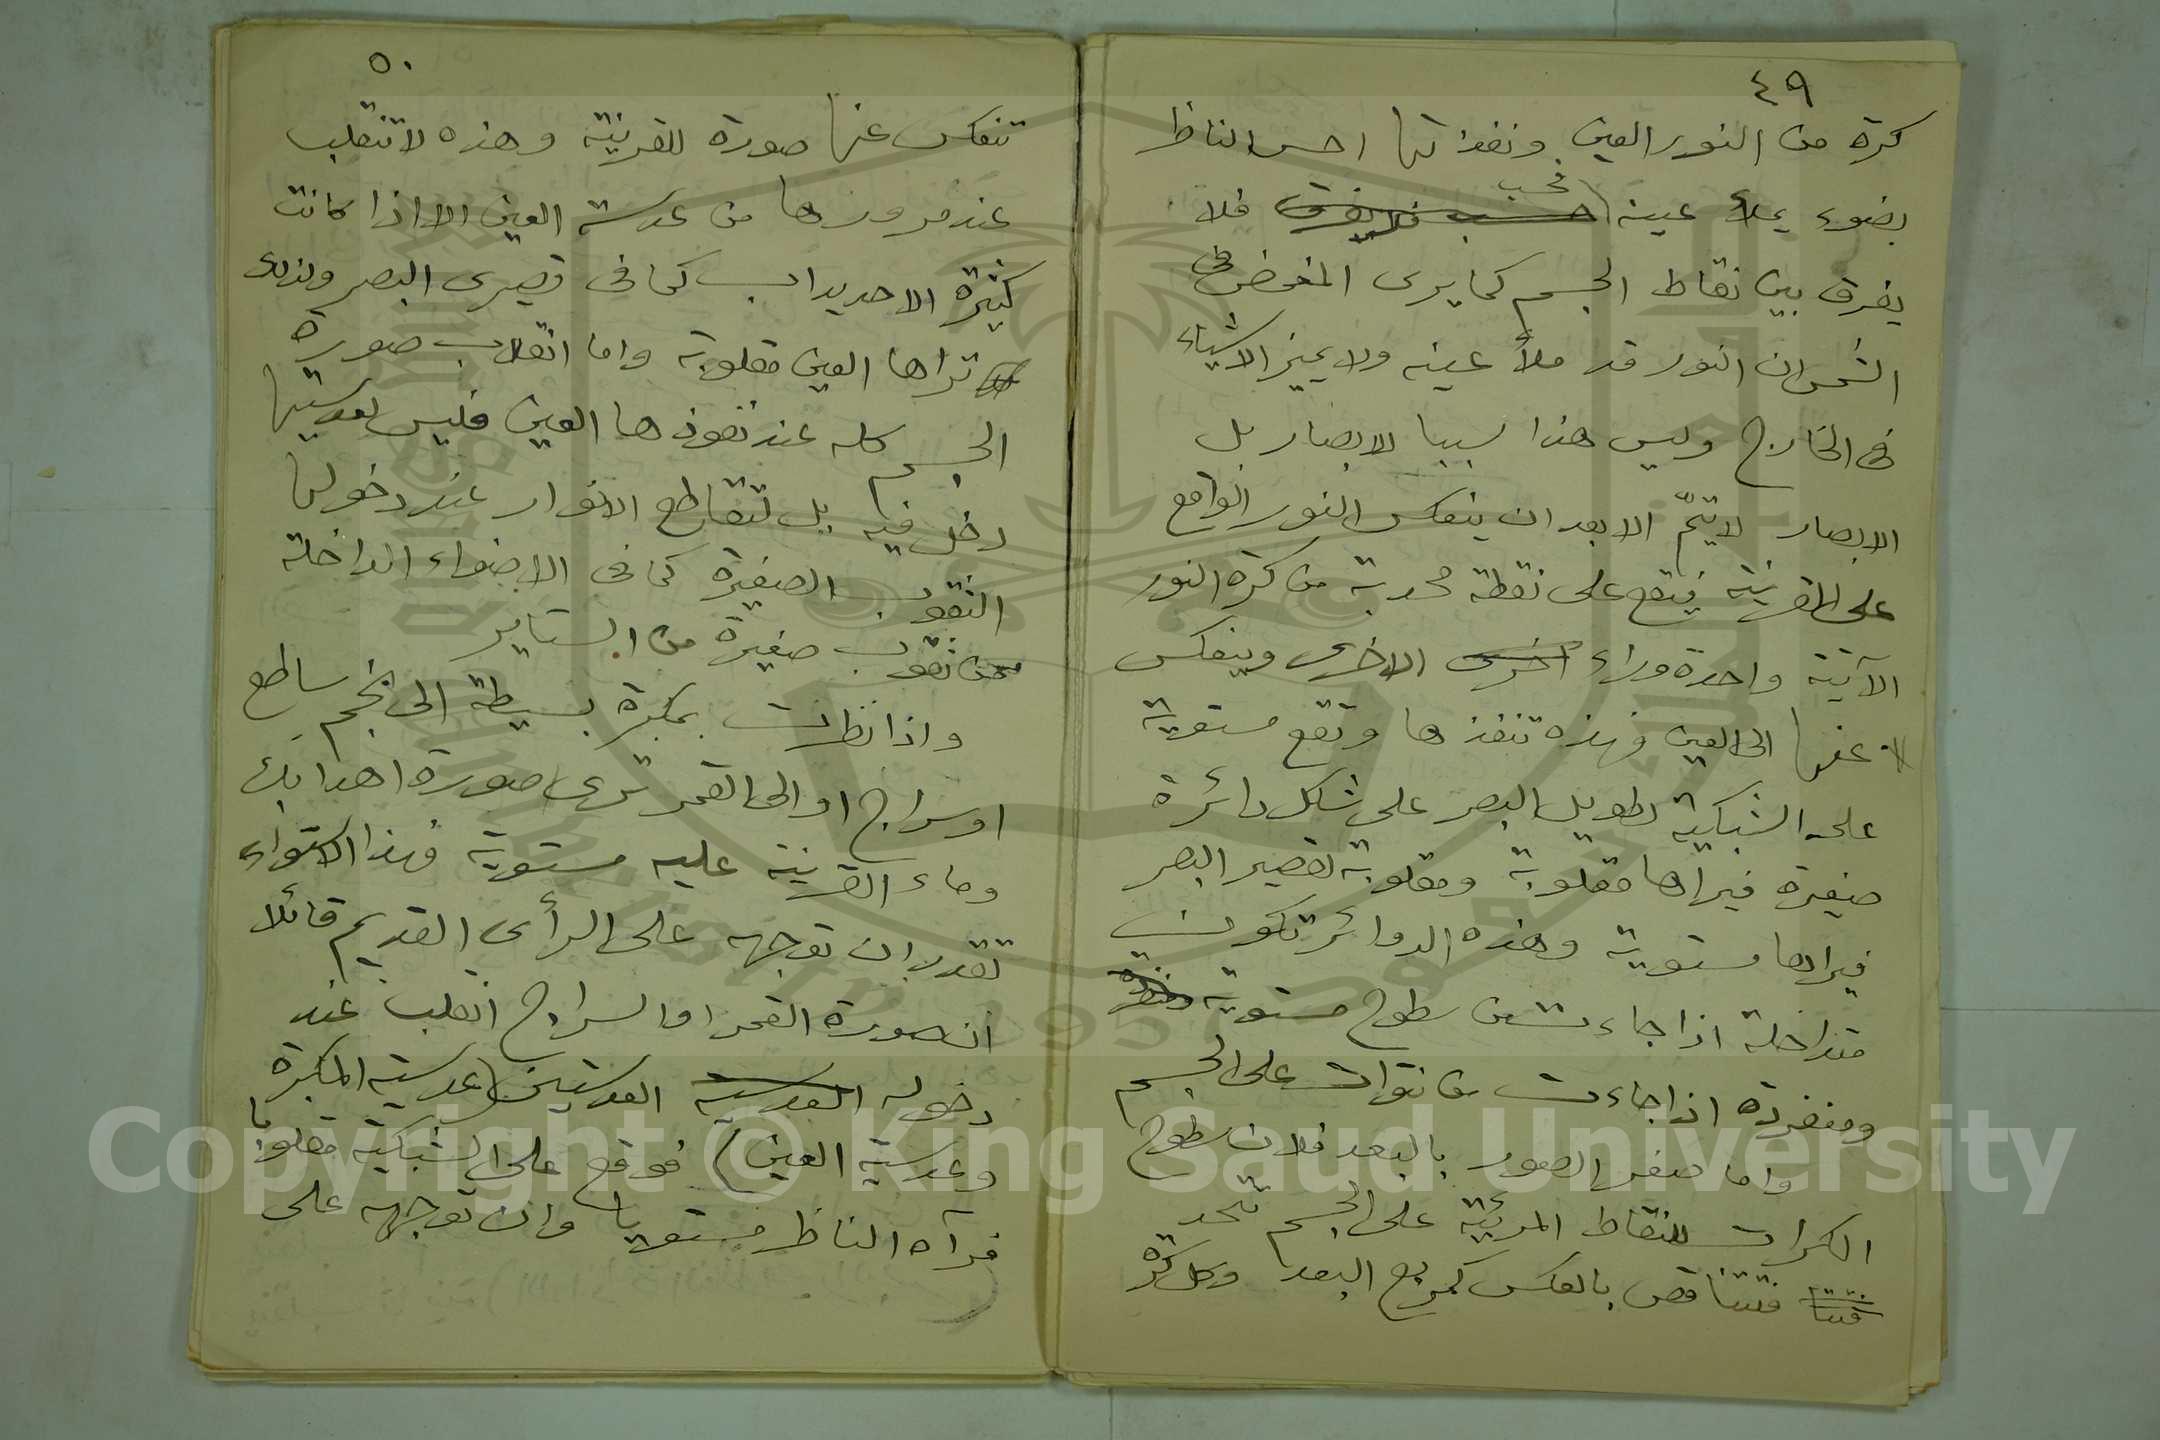 ٤٩
كرة من النور العين ونفذتها احس الناظر
بضوء يملأ عينه فحسب فلا
يفرق بين نقاط الجسم كما يرى المغمض في
الشمس ان النور قد ملأ عينه ولا يميز الاشياء
في الخارج وليس هذا سببا للابصار بل
الابصار لا يتمّ الا بعد ان ينعكس النور الواقع
على القرنية فيقع على نقطة محدبة من كرة النور
الآتية واحدة وراء اخرى الاخرى وينعكس
عنها الى العين فهذه تنفذها وتقع مستوية
على الشبكية لطويل البصر على شكل دائرة
صغيرة فيراها مقلوبة ومقلوبة لقصير البصر
فيراها مستوية وهذه الدوائر تكون
متداخلة اذا جاءت من سطوح مستوية
ومنفردة اذا جاءت من نتوات على الجسم
واما صغر الصور بالبعد فلان سطوح
الكرات للنقاط المرئية على الجسم تتحد
فتتناقص بالعكس كمربع البعد وكل كرة
٥٠
تنعكس عنها صورة للقرنية وهذه لا تنقلب
عند مرورها من عدسة العين الا اذا كانت
كثيرة الاحديداب كما في قصيرى البصر ولذلك
تراها العين مقلوبة واما انقلاب صورة
الجسم كله عند نفوذها العين فليس لعدستها
دخل فيه بل لتقاطع الانوار عند دخولها
الثقوب الصغيرة كما في الاضواء الداخلة
من ثقوب صغيرة من الستاير
واذا نظرت بمكبرة بسيطة الى نجم ساطع
او سراج او الى القمر ترى صورة اهدابك
وماء القرنية عليه مستوية فهذا الاستواء
تقدر ان توجهه على الرأى القديم قائلا
ان صورة القمر او السراج انقلب عند
دخوله العدسية العدستين (عدسية المكبرة
وعدسية العين) فوقع على الشبكية مقلوبا
فرآه الناظر مستويا وان توجهه على
Copyright © King Saud University